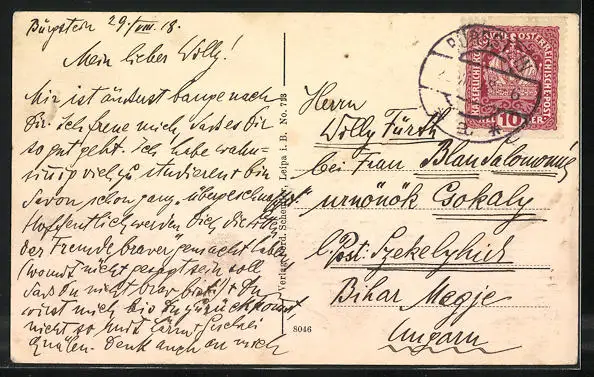 Bürgstein 29./VIII. 18.
Mein lieber Willy!
Mir ist äußerst bange nach
Dir. Ich freue mich, dass es Dir
so gut geht. Ich habe wahn-
sinnig viel zu studieren u. bin
davon schon ganz "übergeschnappt"
Hoffentlich werden Dich die
der Fremde braver gemacht haben
(womit nicht gesagt sein soll
dass Du nicht brav bist) u. Du
wirst mich bis Du zurückkommst,
nicht so mit
quälen. Denk auch an mich
Verlag Ferd. Schenk, Leipa i. B. No. 713
8046
BÜRGSTEIN
KAISERLICHE ÖSTERREICHISCHE POST
10 HELLER
Herrn
Willy Fürth
bei Frau Blau Salomonné
urnönök Csokaly
l. Post: Szekelyhid
Bihar Megje
Ungarn